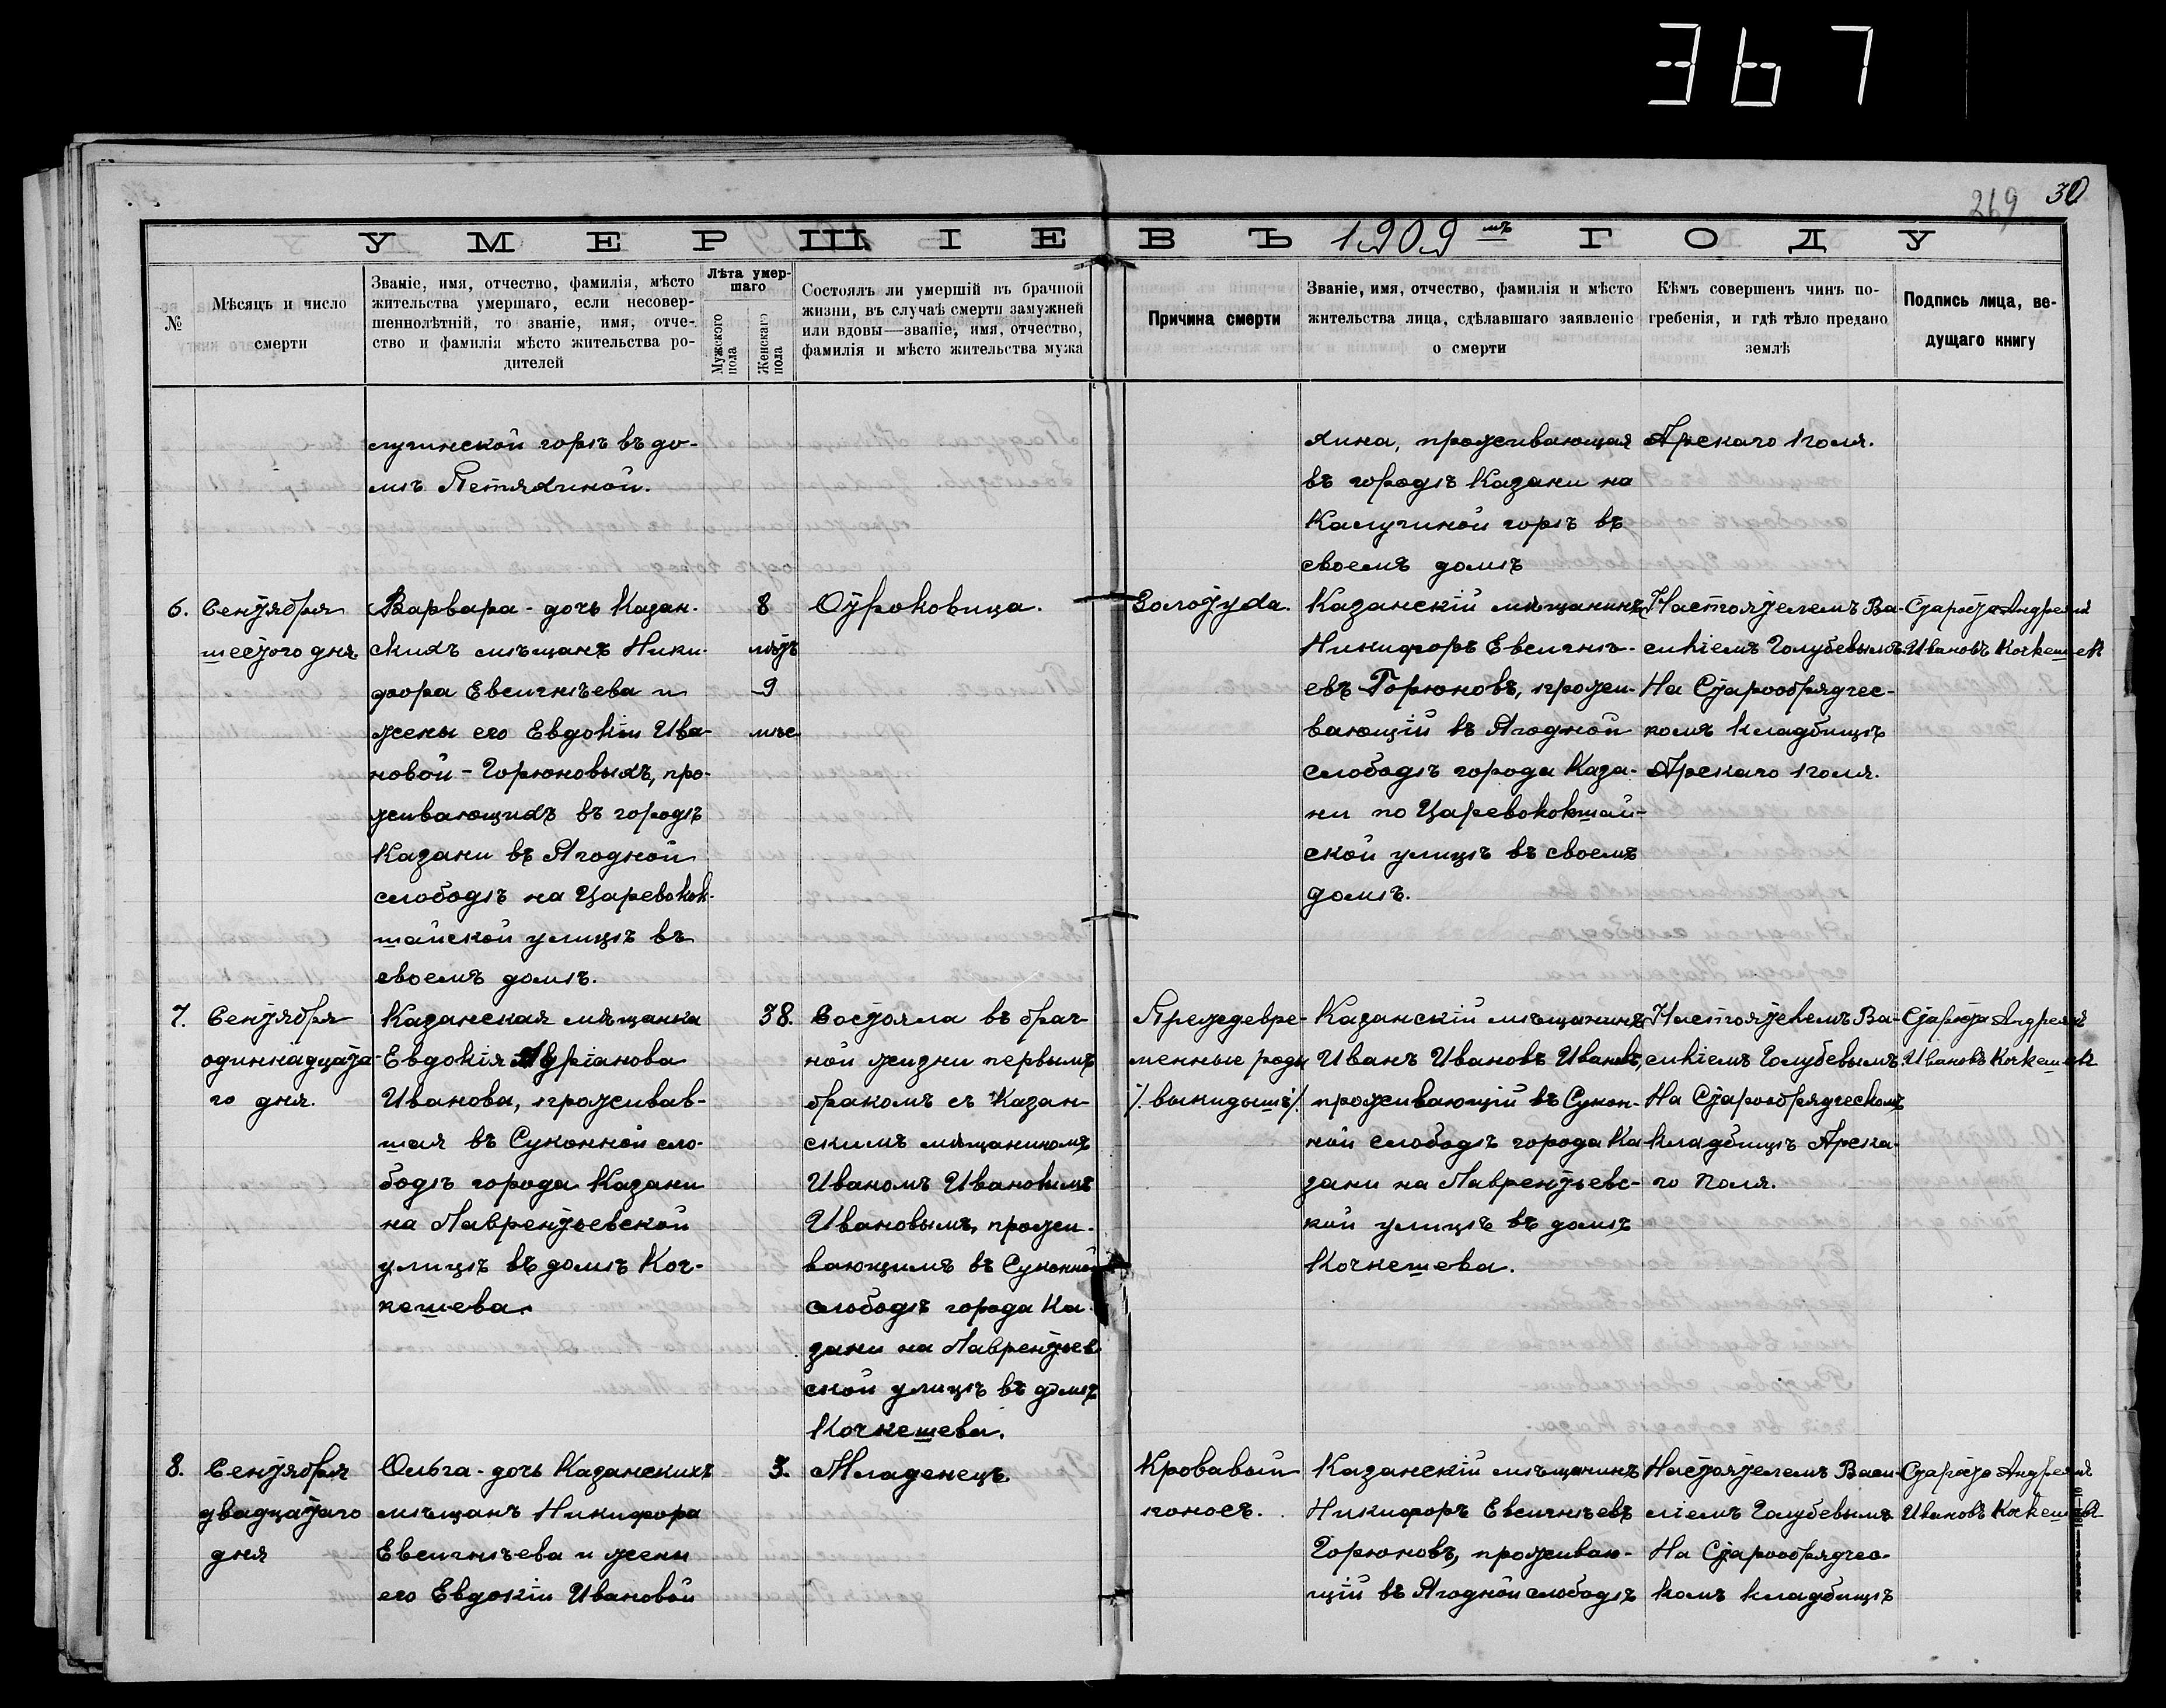 367
269 30
УМЕРШІЕ ВЪ 1909мъ ГОДУ
№
Мѣсяцъ и число
смерти
Званіе, имя, отчество, фамилія, мѣсто
жительства умершаго, если несовер-
шеннолѣтній, то званіе, имя, отче-
ство и фамилія мѣсто жительства ро-
дителей
Лѣта умер-
шаго
Мужского
пола
Женскаго
пола
Состоялъ ли умершій въ брачной
жизни, въ случаѣ смерти замужней
или вдовы—званіе, имя, отчество,
фамилія и мѣсто жительства мужа
Причина смерти
Званіе, имя, отчество, фамилія и мѣсто
жительства лица, сдѣлавшаго заявленіе
о смерти
Кѣмъ совершенъ чинъ по-
гребенія, и гдѣ тѣло предано
землѣ
Подпись лица, ве-
дущаго книгу
лугинской горѣ въ до-
мѣ Петляхиной.
хина, проживающая
въ городѣ Казани на
Калугиной горѣ въ
своемъ домѣ
Арскаго поля.
6.
Сентября
шестого дня
Варвара - дочь Казан-
скихъ мѣщанъ Ники-
фора Евсигнѣева и
жены его Евдокіи Ива-
новой - Горюновыхъ, про-
живающихъ въ городѣ
Казани въ Ягодной
слободѣ на Царевокок-
шайской улицѣ въ
своемъ домѣ.
8
лѣтъ
9
мѣс
Отроковица.
Золотуха.
Казанскій мѣщанинъ
Никифоръ Евсигнѣ-
евъ Горюновъ, прожи-
вающій въ Ягодной
слободѣ города Каза-
ни по Царевококшай-
ской улицѣ въ своемъ
домѣ.
Настоятелемъ Ва-
силіемъ Голубевымъ.
На Старообрядчес-
комъ кладбищѣ
Арскаго поля.
Староста Андрей
Ивановъ Кочкешевъ
7.
Сентября
одиннадцата-
го дня.
Казанская мѣщанка
Евдокія Адріанова
Иванова, проживав-
шая въ Суконной сло-
бодѣ города Казани
на Лаврентьевской
улицѣ въ домѣ Коч-
кешева.
38.
Состояла въ брач-
ной жизни первымъ
бракомъ съ Казан-
скимъ мѣщаниномъ
Иваномъ Ивановымъ
Ивановымъ, прожи-
вающимъ въ Суконной
слободѣ города Ка-
зани на Лаврентьев-
ской улицѣ въ домѣ
Кочкешева.
Преждевре-
менные роды
/. выкидышъ/.
Казанскій мѣщанинъ
Иванъ Ивановъ Ивановъ,
проживающій въ Сукон-
ной слободѣ города Ка-
зани на Лаврентьевс-
кой улицѣ въ домѣ
Кочкешева.
Настоятелемъ Ва-
силіемъ Голубевымъ.
На Старообрядческомъ
кладбищѣ Арска-
го Поля.
Староста Андрей
Ивановъ Кочкешевъ
8.
Сентября
двадцатаго
дня
Ольга - дочь Казанскихъ
мѣщанъ Никифора
Евсигнѣева и жены
его Евдокіи Ивановой
3.
Младенецъ
Кровавый
поносъ.
Казанскій мѣщанинъ
Никифоръ Евсигнѣевъ
Горюновъ, проживаю-
щій въ Ягодной слободѣ
Настоятелемъ Васи-
ліемъ Голубевымъ
На Старообрядчес-
комъ кладбищѣ
Староста Андрей
Ивановъ Кочкешевъ